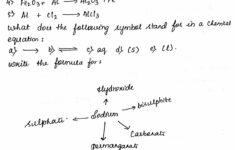 4) Fe₂O₃ + Al → Al₂O₃ + Fe
5) Al + Cl₂ → AlCl₃
What does the following symbol stand for in a chemical
equation:
a) → b) ⇌ c) aq d) (s) e) (l).
Write the formula for:
Hydroxide
bisulphite
sulphate
Sodium
Carbonate
Permanganate